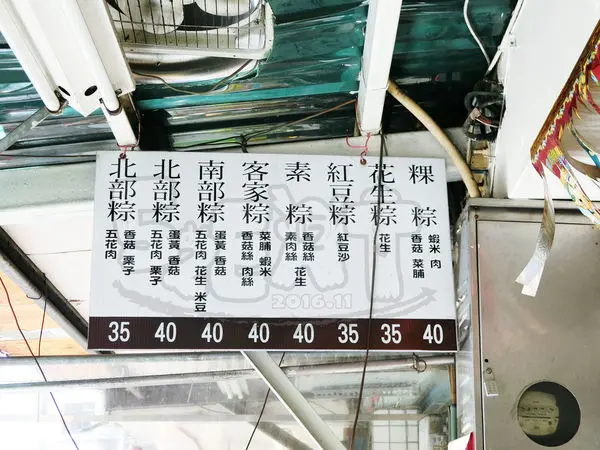 粿粽
蝦米 肉
香菇 菜脯
40
花生粽
花生
35
紅豆粽
紅豆沙
35
素粽
香菇絲 花生
素肉絲
40
客家粽
菜脯 蝦米
香菇絲 肉絲
40
南部粽
蛋黃 香菇
五花肉 花生 米豆
40
北部粽
蛋黃 香菇
五花肉 栗子
40
北部粽
香菇 栗子
五花肉
35
2016.11